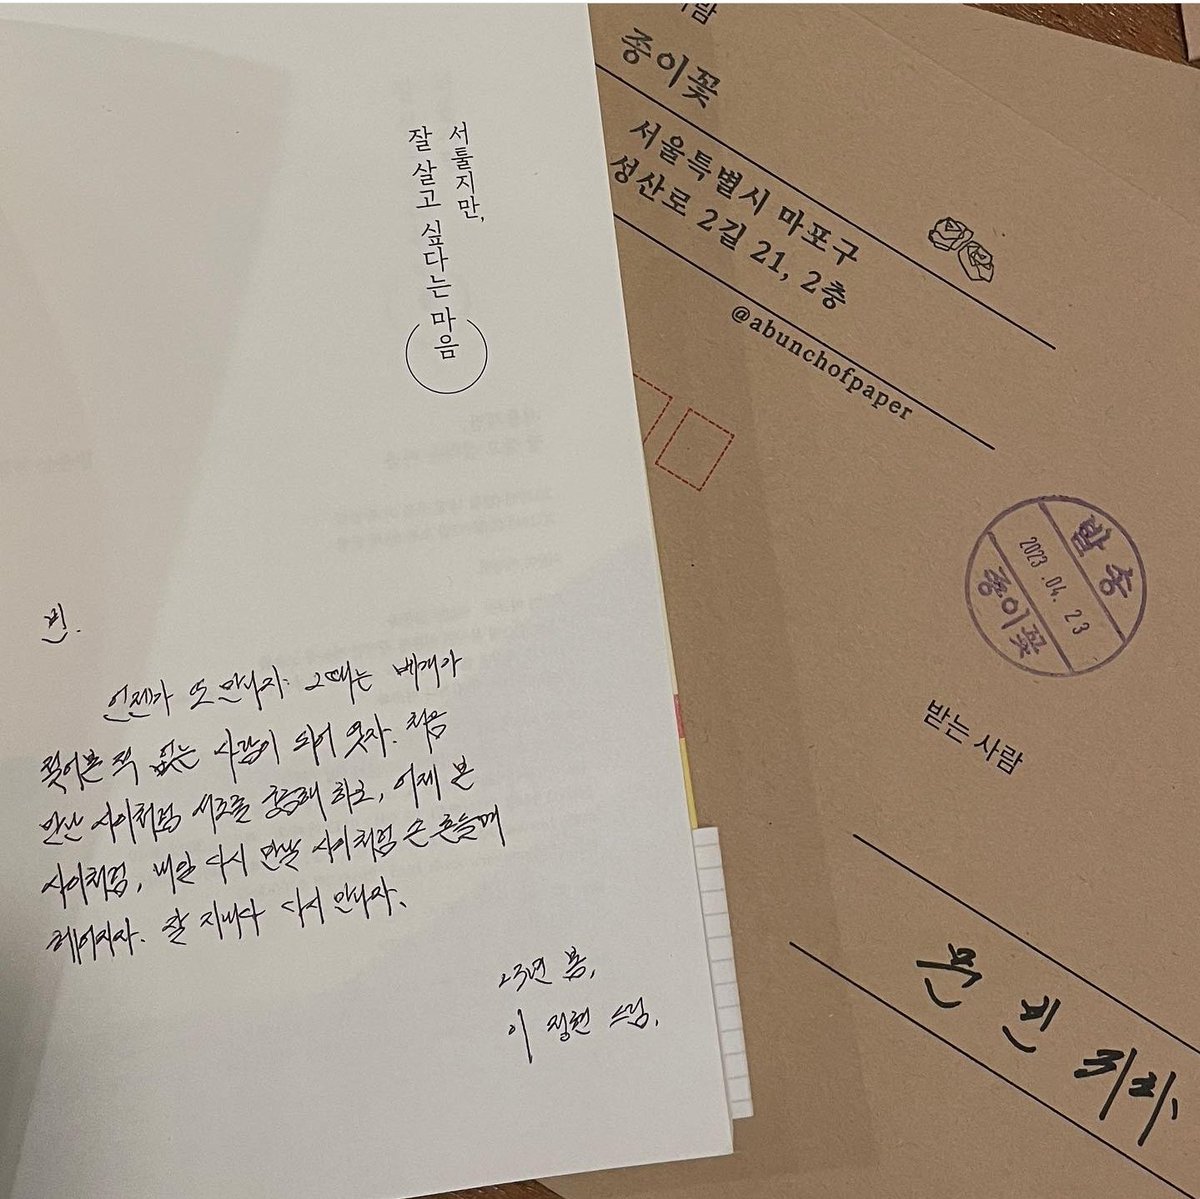 서툴지만,
잘 살고 싶다는 마음
빈.
언젠가 또 만나자. 그때는 베개가
젖어본 적 없는 사람이 되어 있자. 처음
만난 사이처럼 서로를 궁금해 하고, 어제 본
사이처럼, 내일 다시 만날 사이처럼 손 흔들며
헤어지자. 잘 지내다 다시 만나자.
23년 봄,
이 정현 드림.
람
종이꽃
서울특별시 마포구
성산로 2길 21, 2층
@abunchofpaper
발송
2023.04.23
종이꽃
받는 사람
문 빈